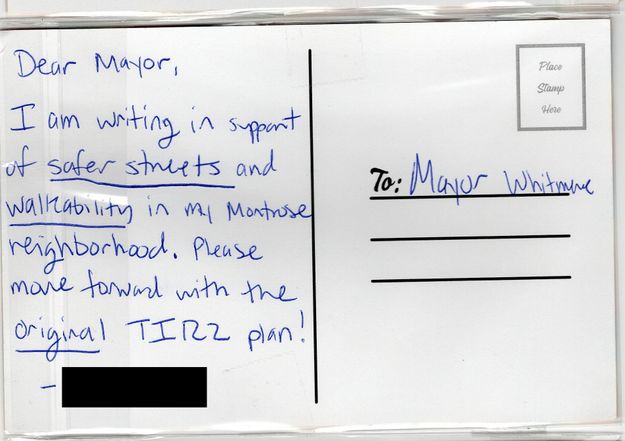 Dear Mayor,
I am writing in support
of safer streets and
walkability in my Montrose
neighborhood. Please
move forward with the
original TIRZ plan!
-
Place
Stamp
Here
To: Mayor Whitmire